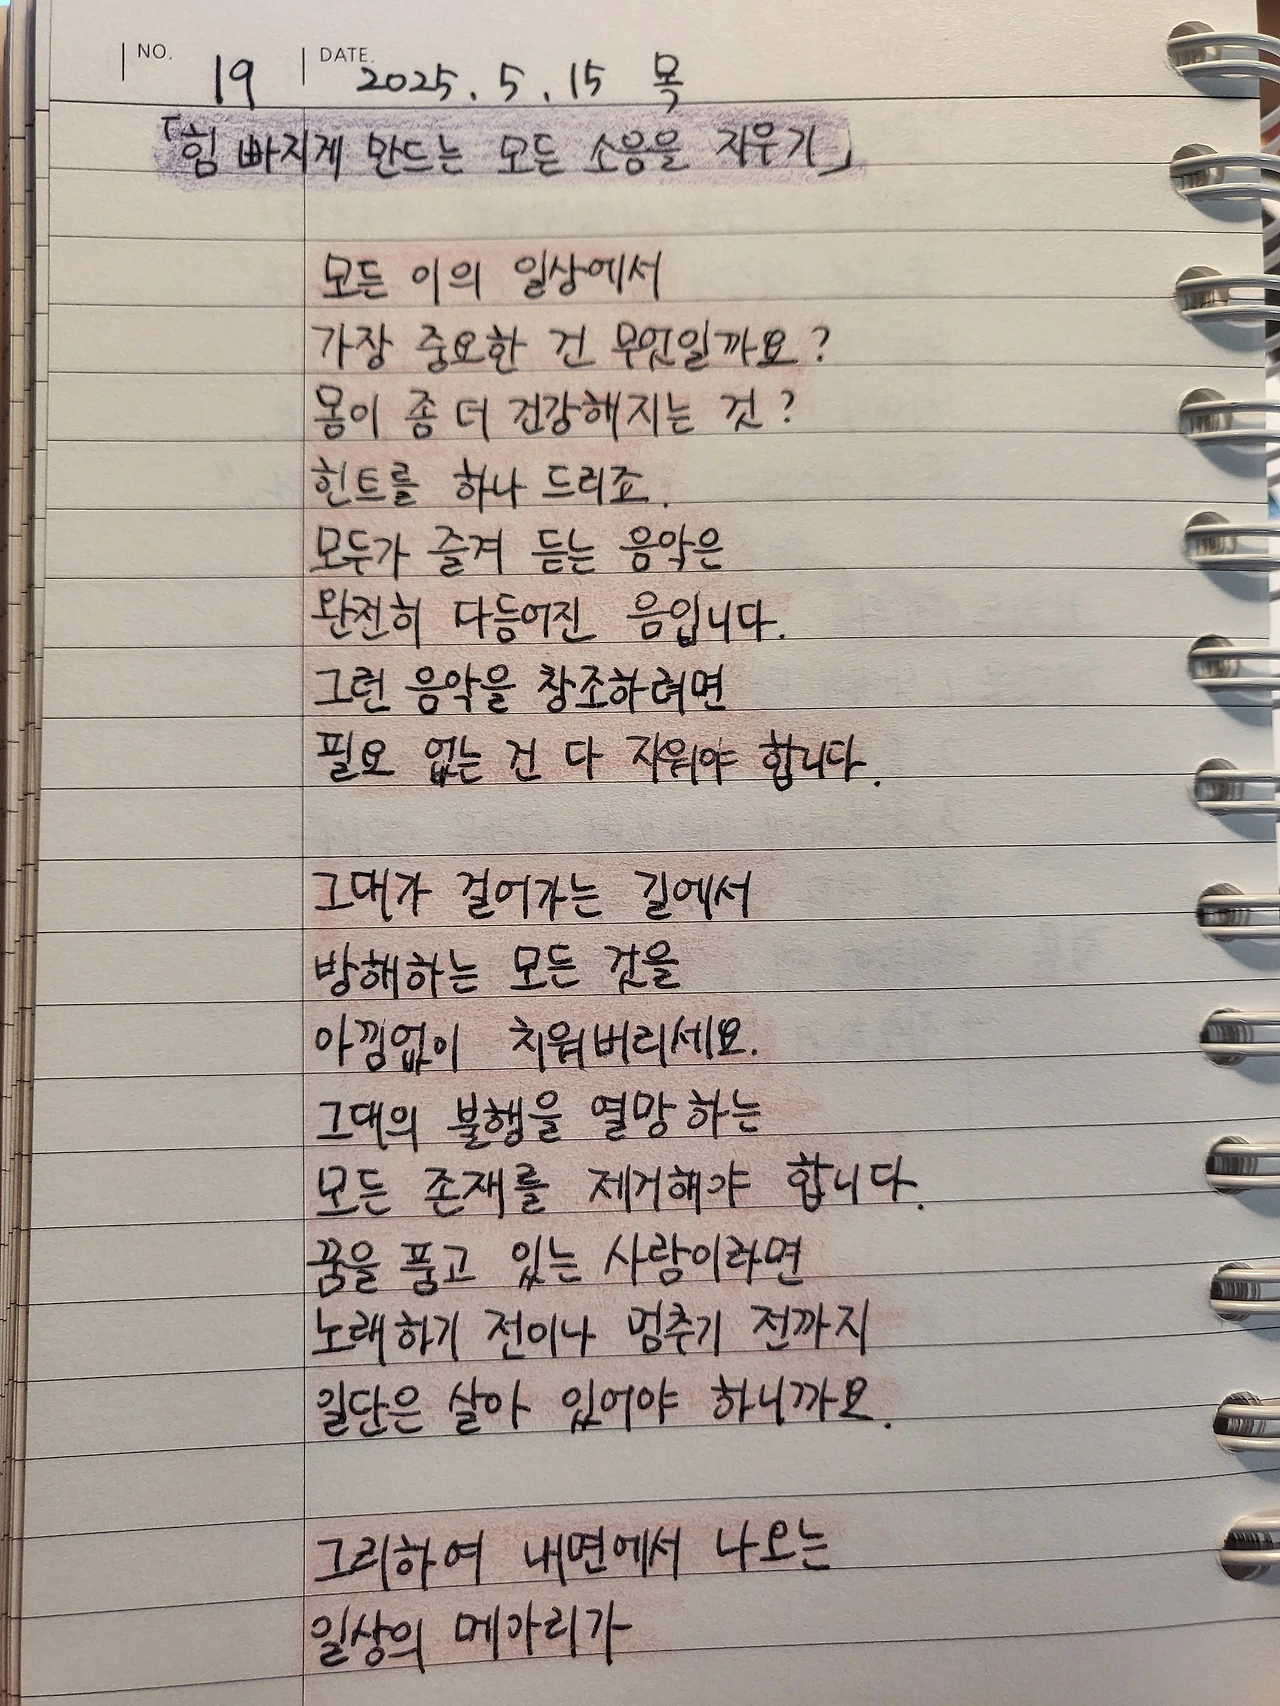 NO. 19 DATE. 2025. 5. 15 목
「힘 빠지게 만드는 모든 소음을 지우기」
모든 이의 일상에서
가장 중요한 건 무엇일까요?
몸이 좀 더 건강해지는 것?
힌트를 하나 드리죠.
모두가 즐겨 듣는 음악은
완전히 다듬어진 음입니다.
그런 음악을 창조하려면
필요 없는 건 다 지워야 합니다.
그대가 걸어가는 길에서
방해하는 모든 것을
아낌없이 치워버리세요.
그대의 불행을 열망하는
모든 존재를 제거해야 합니다.
꿈을 품고 있는 사람이라면
노래하기 전이나 멈추기 전까지
일단은 살아 있어야 하니까요.
그리하여 내면에서 나오는
일상의 메아리가